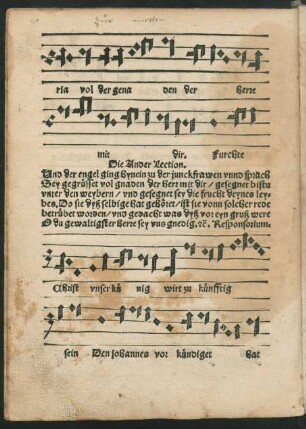 ria vol der gena den der herre
mit dir. Furchte
Die Ander Lection.
Und der engel ging hynein zu der junckfrawen vnnd sprach
Sey gegrüsset vol gnaden der herr mit dir / gesegnet bistu
vnter den weybern / vnd gesegnet sey die frucht deynes ley
bes, Do sie dyß selbige hat gehöret / ist sie vonn solcher rede
betrübet worden / vnd gedacht was dyß vor eyn gruß were
O du gewaltigster herre sey vns gnedig. ꝛc. Responsorium.
Christ vnser kü nig wirt zu künfftig
sein Den Johannes vor kündiget hat